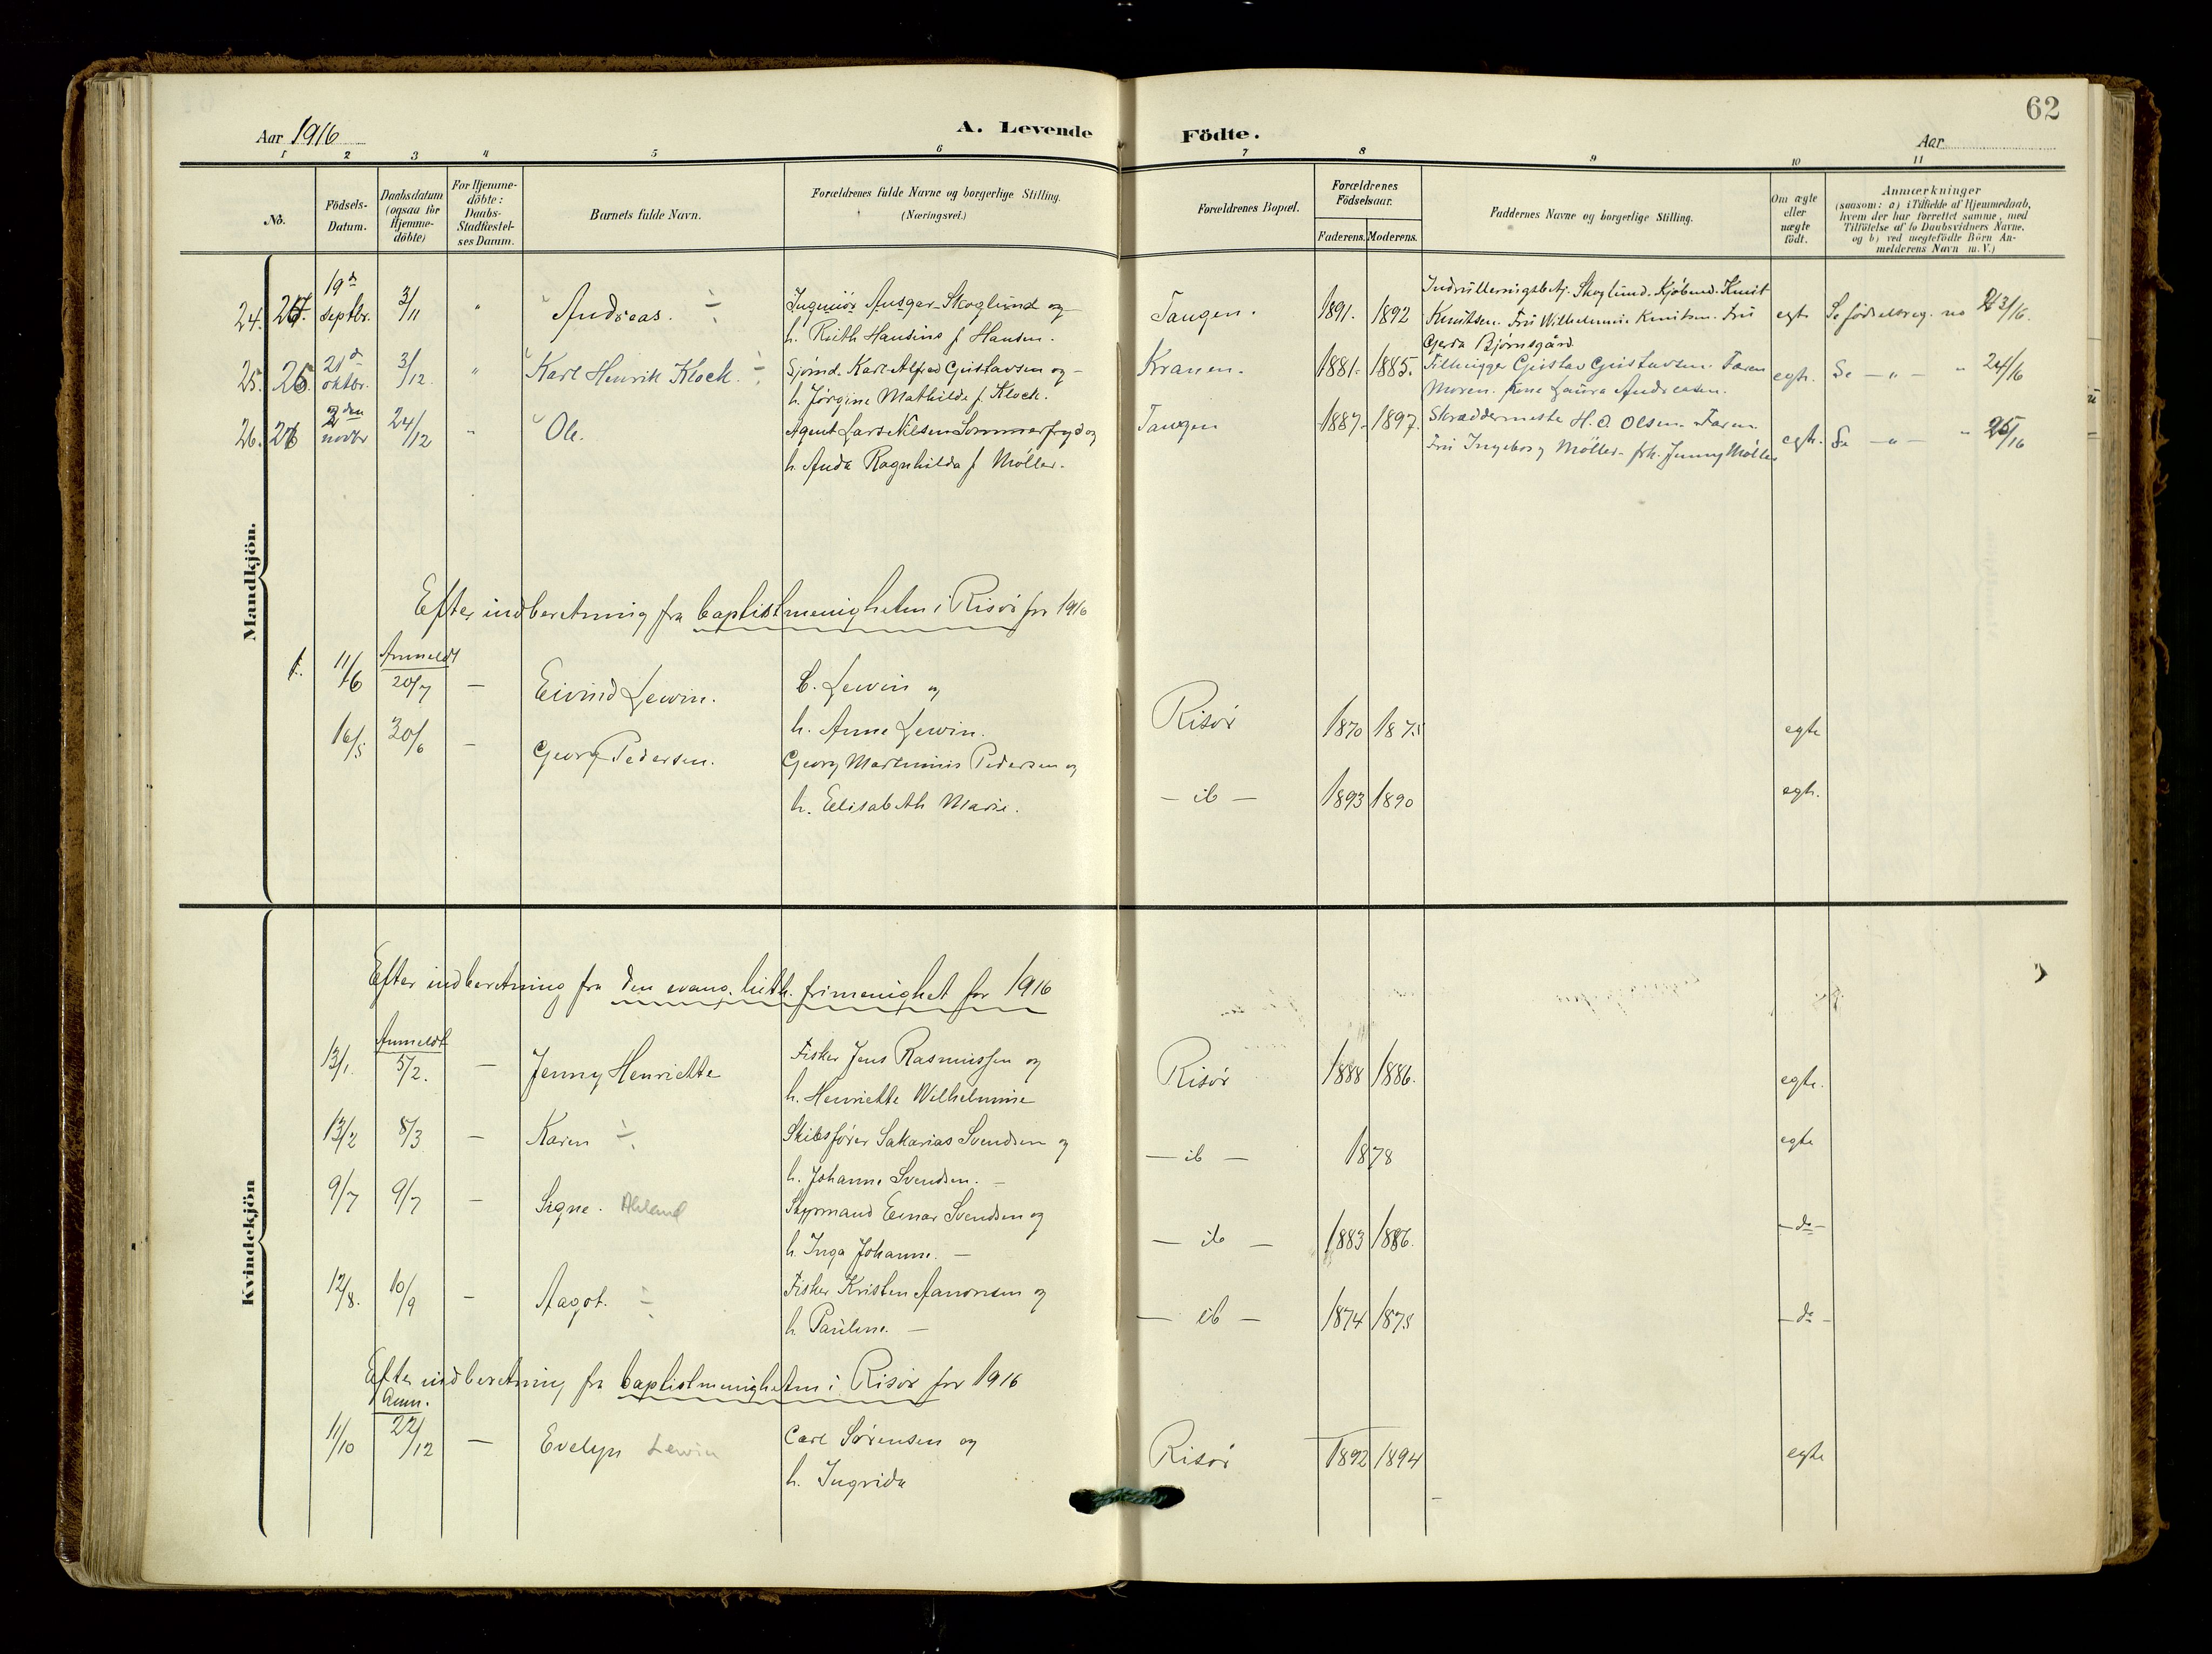 62
Aar 1916
A. Levende Födte.
Aar
1 2 3 4 5 6 7 8 9 10 11
No.
Födsels-Datum.
Daabsdatum (ogsaa for Hjemme-döbte)
For Hjemme-döbte: Daabs-Stadfæstel-ses Datum.
Barnets fulde Navn.
Forældrenes fulde Navne og borgerlige Stilling. (Næringsvei.)
Forældrenes Bopæl.
Forældrenes Födselsaar.
Faderens. Moderens.
Faddernes Navne og borgerlige Stilling.
Om ægte eller uægte födt.
Anmærkninger
(saasom: a) i Tilfælde af Hjemmedaab, hvem der har forrettet samme, med Tilföielse af to Daabsvidners Navne, og b) ved uægtefödte Börn An-melderens Navn m. V.)
Mandkjön.
24. 19d septbr. 3/11 " Andreas. Ingeniør Ansgar Skoglund og
h. Ruth Hansine f. Hansen.
Tangen. 1891. 1892
Indrulleringsbetj. Skoglund. Kjøbmd. Knut
Knutsen. Fru Wilhelmine Knutsen. Fru
Gerda Bjørnsgård
egte Se fødselsreg. no 23/16.
25. 21d oktbr. 3/12. " Karl Henrik Klock. Sjømd. Karl Alfred Gustavsen og
h. Jørgine Mathilde f. Klock.
Kranen. 1881. 1885.
Gustav Gustavsen. Faren
Moren. Kone Laura Andreasen.
egte. Se — " — " 24/16
26. 2den novbr 24/12 " Ole. Agent Lars Nilsen Sommerfryd og
h. Anda Ragnhilda f. Møller.
Tangen 1887. 1897.
Skræddermester H. O. Olsen. Faren.
Fru Ingeborg Möller. frk. Jenny Möller
egte. Se — " — " 25/16
Efter indberetning fra baptistmenigheten i Risør for 1916
1. 11/6 Anmeldt 20/7 — Eivind Lewin. C. Lewin og
h. Anne Lewin.
Risør 1870 1875 egte
16/5 30/6 — Georg Pedersen. Georg Martinius Pedersen og
h. Elisabeth Marie.
— ib — 1893 1890 egte.
Kvindekjön
Efter indberetning fra den evang. luth. frimenighet for 1916
13/1. Anmeldt 5/2. — Jenny Henriette Fisker Jens Rasmussen og
h. Henriette Wilhelmine
Risør 1888 1886. egte.
13/2 8/3 — Karen Skibsfører Sakarias Svendsen og
h. Johanne Svendsen. —
— ib — 1878 egte
9/7 9/7 — Signe. Styrmand Einar Svendsen og
h. Inga Johanne. —
— ib — 1883 1886. — do —
12/8. 10/9 — Aagot. Fisker Kristen Aanonsen og
h. Pauline. —
— ib — 1874 1875 — do —
Efter indberetning fra baptistmenigheten i Risør for 1916
Anm.
11/10 22/12 — Evelyn Lewin Carl Sørensen og
h. Ingrida
Risør 1892 1894 egte